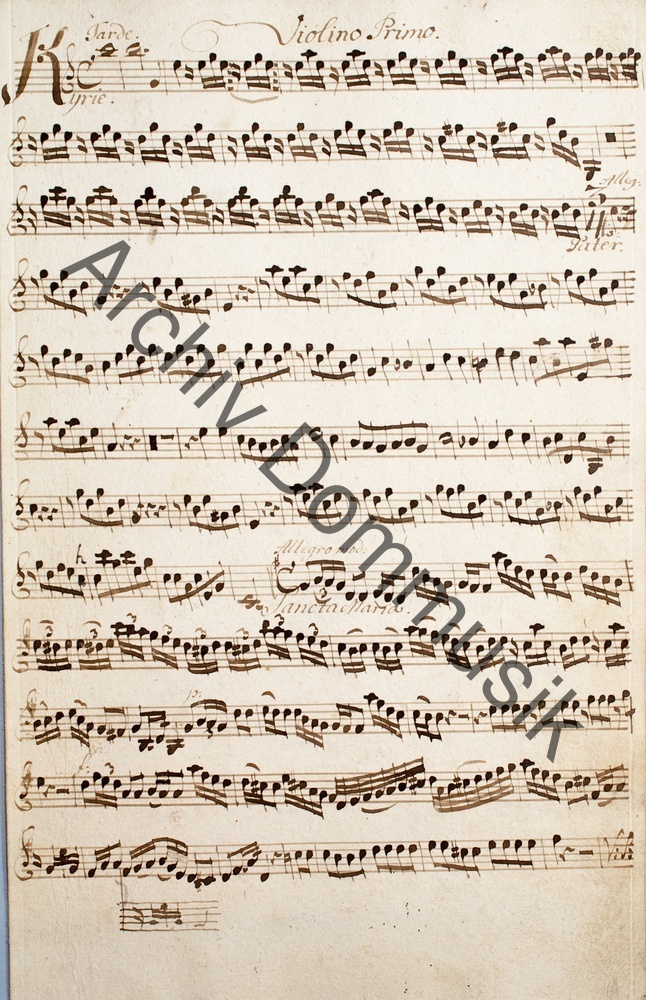 Tarde. Violino Primo.
Kyrie.
Allegº
Pater.
Allegro mod:
Sancta Maria.
Archiv Dommusik